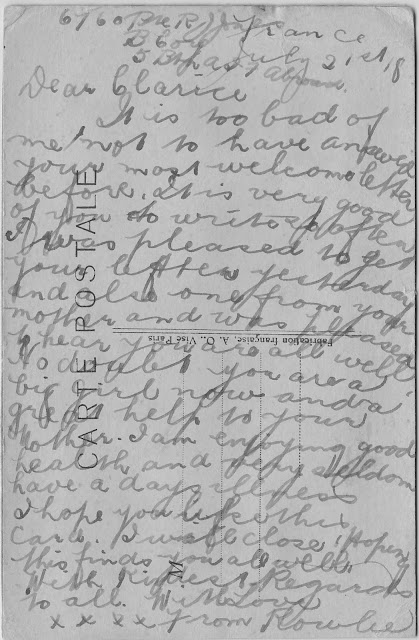 6760 Pte R J Jones France
B Coy July 21st 18
5 Btn A.I.F abroad.
Dear Clarice
It is too bad of
me not to have answered
your most welcome letter
before. It is very good
of you to write so often
I was pleased to get
your letter yesterday
and also one from your
mother and was pleased
I hear you are all well
No doubt you are a
big girl now and a
great help to your
Mother. I am enjoying good
health and very seldom
have a days illness
I hope you like this
Card. I will close Hoping
this finds you all well
With Kindest Regards
to all. With Love
x x x x From
CARTE POSTALE
Fabrication française, A. O., Visé Paris
M